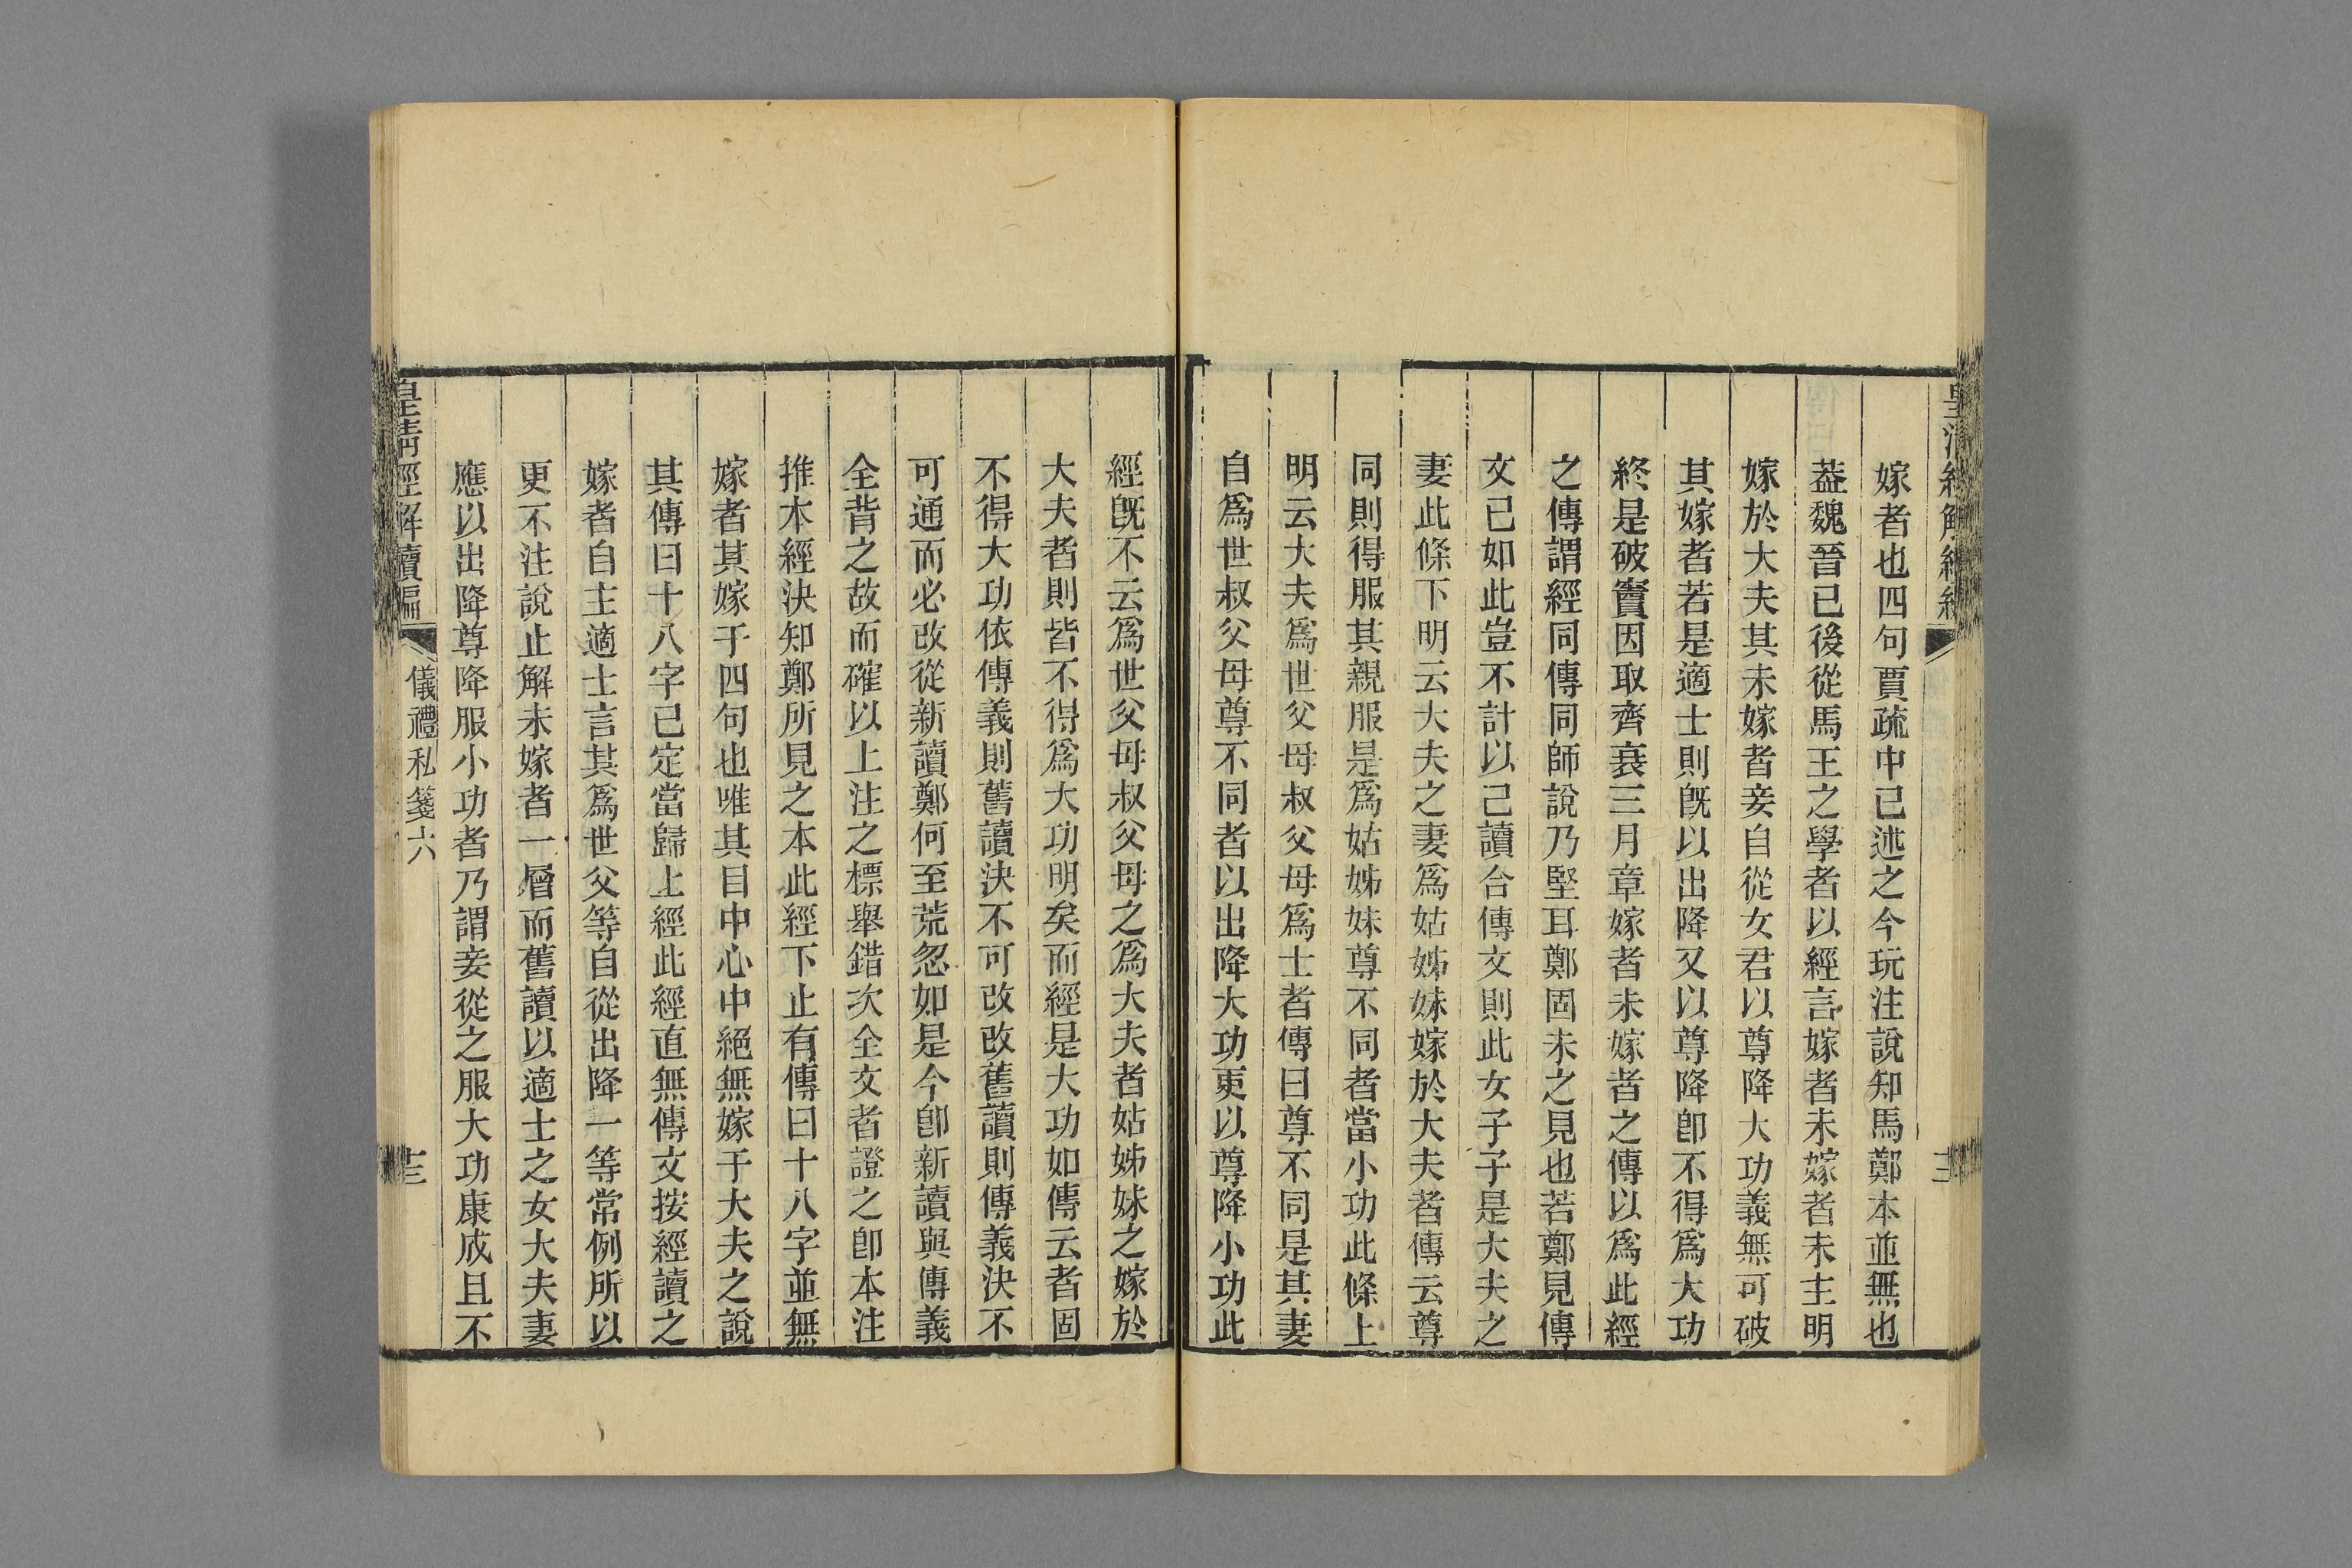 嫁者也四句賈疏中已述之今玩注說知馬鄭本並無也
葢魏晉已後從馬王之學者以經言嫁者未嫁者未主明
嫁於大夫其未嫁者妾自從女君以尊降大功義無可破
其嫁者若是適士則旣以出降又以尊降卽不得爲大功
終是破竇因取齊衰三月章嫁者未嫁者之傳以爲此經
之傳謂經同傳同師說乃堅耳鄭固未之見也若鄭見傳
文已如此豈不計以己讀合傳文則此女子子是大夫之
妻此條下明云大夫之妻爲姑姊妹嫁於大夫者傳云尊
同則得服其親服是爲姑姊妹尊不同者當小功此條上
明云大夫爲世父母叔父母爲士者傳曰尊不同是其妻
自爲世叔父母尊不同者以出降大功更以尊降小功此
經旣不云爲世父母叔父母之爲大夫者姑姊妹之嫁於
大夫者則皆不得爲大功明矣而經是大功如傳云者固
不得大功依傳義則舊讀決不可改改舊讀則傳義決不
可通而必改從新讀鄭何至荒忽如是今卽新讀與傳義
全背之故而確以上注之標舉錯次全文者證之卽本注
推本經決知鄭所見之本此經下止有傳曰十八字並無
嫁者其嫁于四句也唯其目中心中絕無嫁于大夫之說
其傳曰十八字已定當歸上經此經直無傳文按經讀之
嫁者自主適士言其爲世父等自從出降一等常例所以
更不注說止解未嫁者一層而舊讀以適士之女大夫妻
應以出降尊降服小功者乃謂妾從之服大功康成且不
皇清經解續編
儀禮私箋六